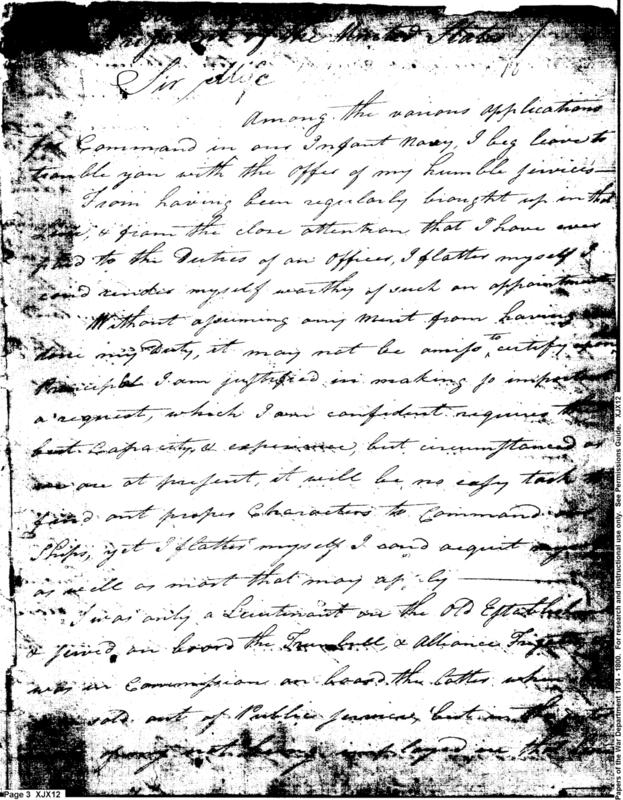 President of the United States
Sir
Among the various applications
for Command in our Infant Navy, I beg leave to
trouble you with the offer of my humble Services—
From having been regularly brought up in that
& from the close attention that I have ever
paid to the Duties of an Officer, I flatter myself I
could render myself worthy of such an appointment
Without assuming any Merit from having
done my Duty, it may not be amiss to certify upon
Principle I am justified in making so important
a request, which I am confident requires the
best Capacity & experience, but circumstanced as
we are at present, it will be no easy task to
find out proper Characters to Command our
Ships, yet I flatter myself I could acquit myself
as well as most that may apply —
I was only a Lieutenant on the Old Establishment
& served on board the Trumbull, & Alliance Frigates
was in Commission on board the latter when
sold out of Public Service, but in the
not being employed in the
Page 3 XJX12
Papers of the War Department 1784 - 1800. For research and instructional use only. See Permissions Guide. XJX12